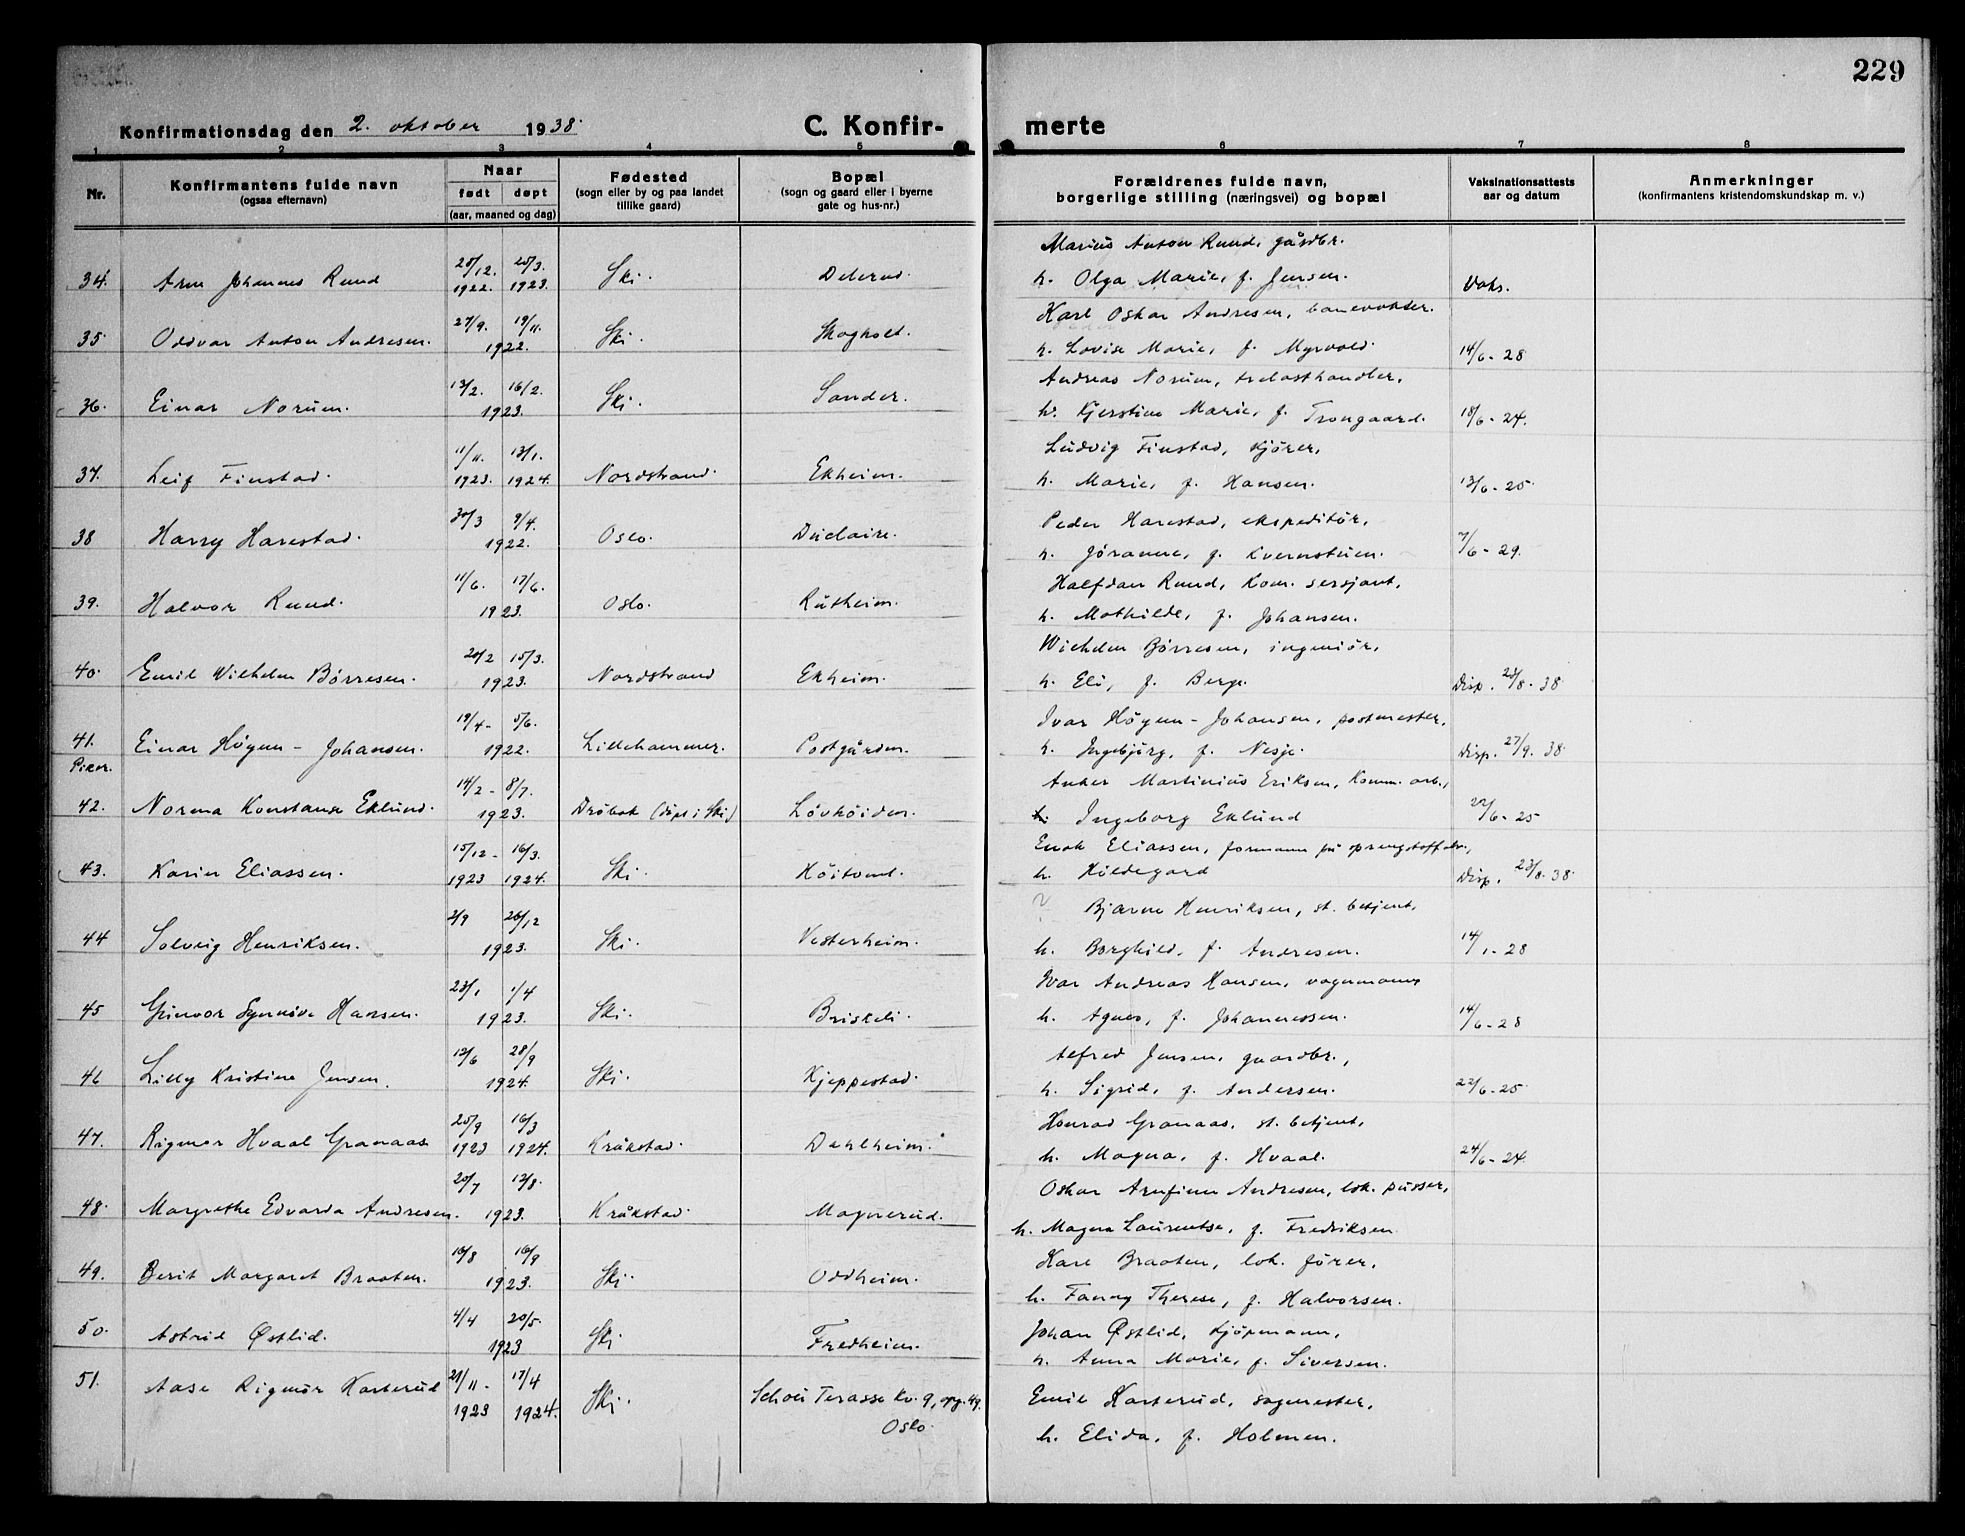 229
Konfirmationsdag den 2. oktober 1938.
C. Konfir- merte
1 2 3 4 5 6 7 8
Nr.
Konfirmantens fulde navn
(ogsaa efternavn)
Naar
født døpt
(aar, maaned og dag)
Fødested
(sogn eller by og paa landet
tillike gaard)
Bopæl
(sogn og gaard eller i byerne
gate og hus-nr.)
Forældrenes fulde navn,
borgerlige stilling (næringsvei) og bopæl
Vaksinationsattests
aar og datum
Anmerkninger
(konfirmantens kristendomskundskap m. v.)
Marius Anton Ruud, gårdbr.
34. Arne Johannes Ruud 20/12. 1922. 20/3. 1923. Ski. Delerud. h. Olga Marie, f. Jensen. Vaks.
Karl Oskar Andresen, banevokter.
35. Oddvar Anton Andresen. 27/9. 19/11. 1922. Ski. Skogholt. h. Lovise Marie, f. Myrvold. 14/6-28
Andreas Norum, trelasthandler,
36. Einar Norum. 13/2. 16/2. 1923. Ski. Sander. h. Kjerstine Marie, f. Trongaard. 18/6-24.
Ludvig Finstad, kjører,
37. Leif Finstad. 11/11. 1923. 13/1. 1924. Nordstrand. Ekheim. h. Marie, f. Hansen. 13/6-25
Peder Harestad, ekspeditør,
38 Harry Harestad. 30/3 9/4. 1922. Oslo. Duclaire. h. Jøranne, f. Kvernstuen. 7/6-29.
Halfdan Ruud, Kom. sersjant,
39. Halvor Ruud. 11/6. 17/6. 1923. Oslo. Rutheim. h. Mathilde, f. Johansen.
Wilhelm Børresen, ingeniør,
40. Emil Wilhelm Børresen. 20/2 15/3. 1923. Nordstrand Ekheim. h. Eli, f. Berge. Disp. 23/8-38
Ivar Høgun-Johansen, postmester,
41. Einar Høgun-Johansen. 19/4- 5/6. 1922. Lillehammer. Postgården. h. Ingebjørg, f. Nesje. Disp. 27/9. 38
Piker.
Anker Martinius Eriksen, Komm. arb.,
42. Norma Konstanse Eklund. 14/2- 8/7. 1923. Drøbak (døpt i Ski) Løvhøiden. Ingeborg Eklund 22/6-25
Enok Eliassen, formann på sprengstoffabr.,
43. Karin Eliassen. 15/12- 1923 16/3. 1924. Ski. Høitomt. h. Hildegard Disp. 23/8-38
? Bjarne Henriksen, st. betjent,
44 Solveig Henriksen. 2/9 26/12 1923. Ski. Vesterheim. h. Borghild, f. Andresen. 14/1-28
Ivar Andreas Hansen, vognmann
45 Gunvor Synnøve Hansen. 23/1 1/4 1923. Ski. Briskeli. h. Agnes, f. Johannessen. 14/6-28
Alfred Jensen, gaardbr.,
46 Lilly Kristine Jensen. 12/6 28/9 1924. Ski. Kjeppestad. h. Sigrid, f. Andersen. 22/6-25
Konrad Granaas, st. betjent,
47. Rigmor Hvaal Granaas 25/9 1923 16/3 1924. Kråkstad. Dahlheim. h. Magna, f. Hvaal. 24/6-24
Oskar Arnfinn Andresen, lok. pusser,
48. Margrethe Edvarda Andresen. 20/7 12/8. 1923. Kråkstad. Magnerud. h. Magna Lauentse, f. Fredriksen
Karl Braaten, lok. fører,
49. Berit Margaret Braaten. 16/8 16/9 1923. Ski. Oddheim. h. Fanny Therese, f. Halvorsen.
Johan Østlid, kjøpmann,
50. Astrid Østlid. 4/4 20/5. 1923 Ski Fredheim. h. Anna Marie, f. Siversen.
51. Aase Rigmor Karterud 21/11- 1923 17/4 1924. Ski. Schou Terasse kv. 9, opg. 49. Emil Karterud, sagmester,
Oslo.
h. Elida, f. Holmen.